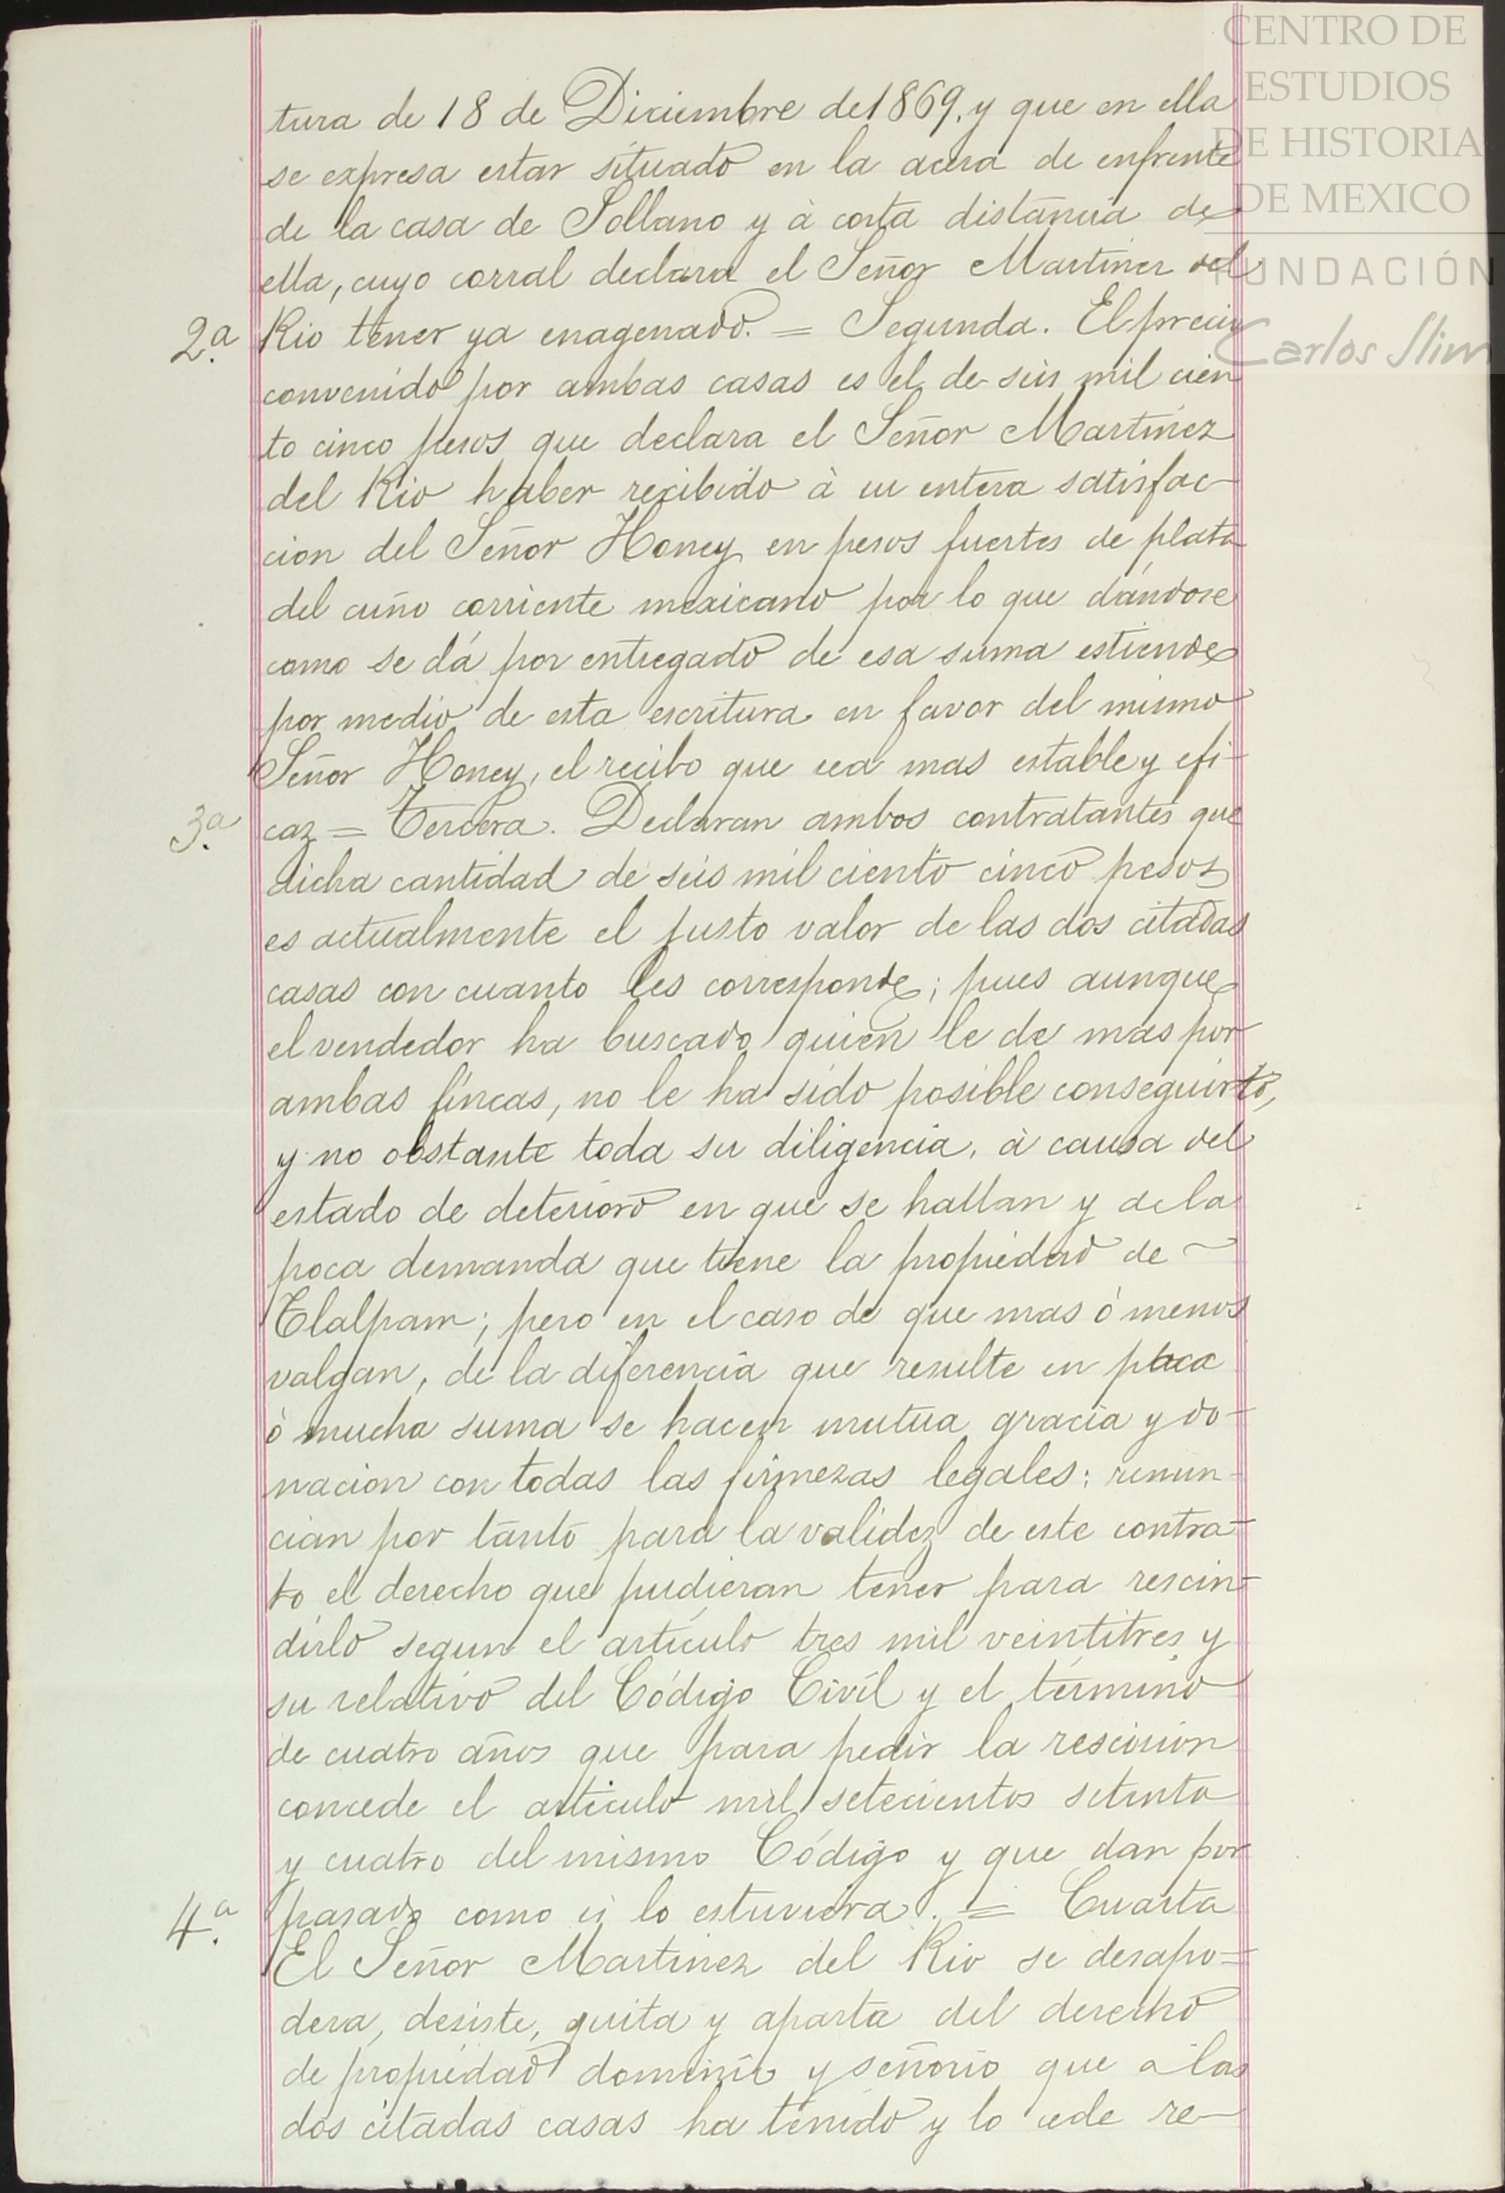 CENTRO DE
ESTUDIOS
DE HISTORIA
DE MEXICO
FUNDACIÓN
Carlos Slim
tura de 18 de Diciembre de 1869. y que en ella
se expresa estar situado en la acera de enfrente
de la casa de Sollano y à corta distancia de
ella, cuyo corral declara el Señor Martinez del
2.a Rio tener ya enagenado. = Segunda. El precio
convenido por ambas casas es el de seis mil cien
to cinco pesos que declara el Señor Martinez
del Rio haber recibido à su entera satisfac-
cion del Señor Honey en pesos fuertes de plata
del cuño corriente mexicano por lo que dándose
como se dá por entregado de esa suma estiende
por medio de esta escritura en favor del mismo
Señor Honey, el recibo que sea mas estable y efi-
3.a caz = Tercera. Declaran ambos contratantes que
dicha cantidad de seis mil ciento cinco pesos
es actualmente el justo valor de las dos citadas
casas con cuanto les corresponde; pues aunque
el vendedor ha buscado quien le de mas por
ambas fincas, no le ha sido posible conseguirlo,
y no obstante toda su diligencia, à causa del
estado de deterioro en que se hallan y de la
poca demanda que tiene la propiedad de
Tlalpam; pero en el caso de que mas ó menos
valgan, de la diferencia que resulte en poca
ò mucha suma se hacen mutua gracia y do-
nacion con todas las firmezas legales: renun-
cian por tanto para la validez de este contra-
to el derecho que pudieran tener para rescin-
dirlo segun el artículo tres mil veintitres y
su relativo del Código Civil y el término
de cuatro años que para pedir la rescision
concede el articulo mil setecientos setenta
y cuatro del mismo Código y que dan por
4.a pasado como si lo estuviera. = Cuarta
El Señor Martinez del Rio se desapo=
dera, desiste, quita y aparta del derecho
de propiedad dominio y señorio que a las
dos citadas casas ha tenido y lo cede re-